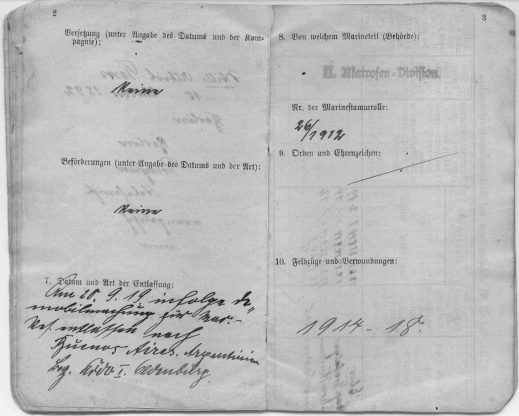 2
Versetzung (unter Angabe des Datums und der Kom-
pagnie):
Keine
Beförderungen (unter Angabe des Datums und der Art):
Keine
7. Datum und Art der Entlassung:
Am 20. 9. 19 infolge De„
mobilmachung zur Mar.-
Res. entlassen nach
Buenos Aires. Argentinien
Bez. Kdo I. Oldenburg.
3
8. Von welchem Marineteil (Behörde):
II. Matrosen-Division.
Nr. der Marinestammrolle:
26/1912
9. Orden und Ehrenzeichen:
10. Feldzüge und Verwundungen:
1914 - 18.